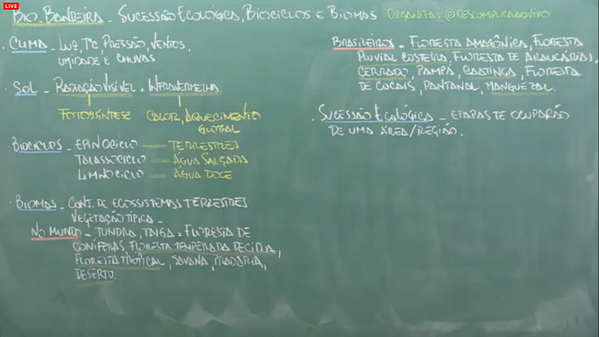 LIVE
BIO. BANDEIRA - SUCESSÃO ECOLÓGICA, BIOCICLOS E BIOMAS ORGANIZA: @DESCOMPLICAAOVIVO
• CLIMA - LUZ, TºC, PRESSÃO, VENTOS,
UMIDADE E CHUVAS
• SOL - RADIAÇÃO VISÍVEL + INFRAVERMELHA
FOTOSSÍNTESE CALOR, AQUECIMENTO
GLOBAL
• BIOCICLOS - EPINOCICLO — TERRESTRES
TALASSOCICLO — ÁGUA SALGADA
LIMNOCICLO — ÁGUA DOCE
• BIOMAS - CONJ. DE ECOSSISTEMAS TERRESTRES
VEGETAÇÃO TÍPICA -
NO MUNDO = TUNDRA, TAIGA = FLORESTA DE
CONÍFERAS, FLORESTA TEMPERADA DECÍDUA,
FLORESTA TROPICAL, SAVANA, PRADARIA,
DESERTO.
BRASILEIROS = FLORESTA AMAZÔNICA, FLORESTA
PLUVIAL COSTEIRA, FLORESTA DE ARAUCÁRIAS,
CERRADO, PAMPA, CAATINGA, FLORESTA
DE COCAIS, PANTANAL, MANGUEZAL.
• SUCESSÃO ECOLÓGICA - ETAPAS DE OCUPAÇÃO
DE UMA ÁREA/REGIÃO.